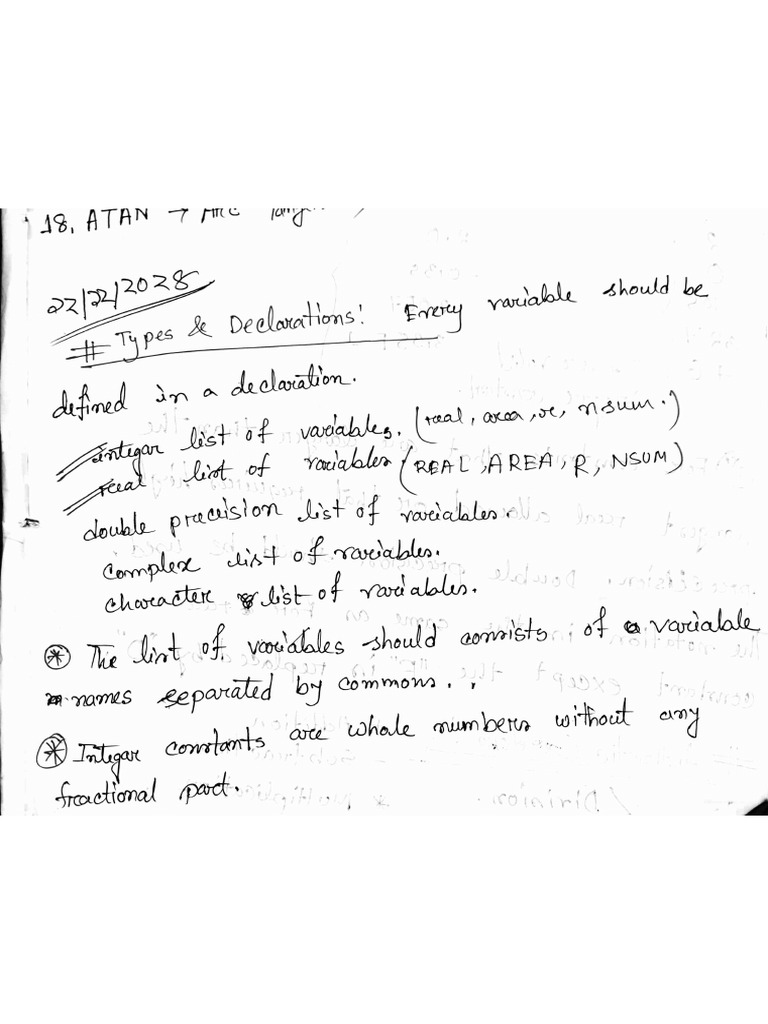 18. ATAN →
22/22/2028
# Types & Declarations! Every variable should be
defined in a declaration.
integar list of variables. (real, area, r, nsum.)
real list of variables (REAL, AREA, R, NSUM)
double precision list of variables
complex list of variables.
character list of variables.
* The list of variables should consists of a variable
names separated by commons..
* Integar constants are whole numbers without any
fractional part.